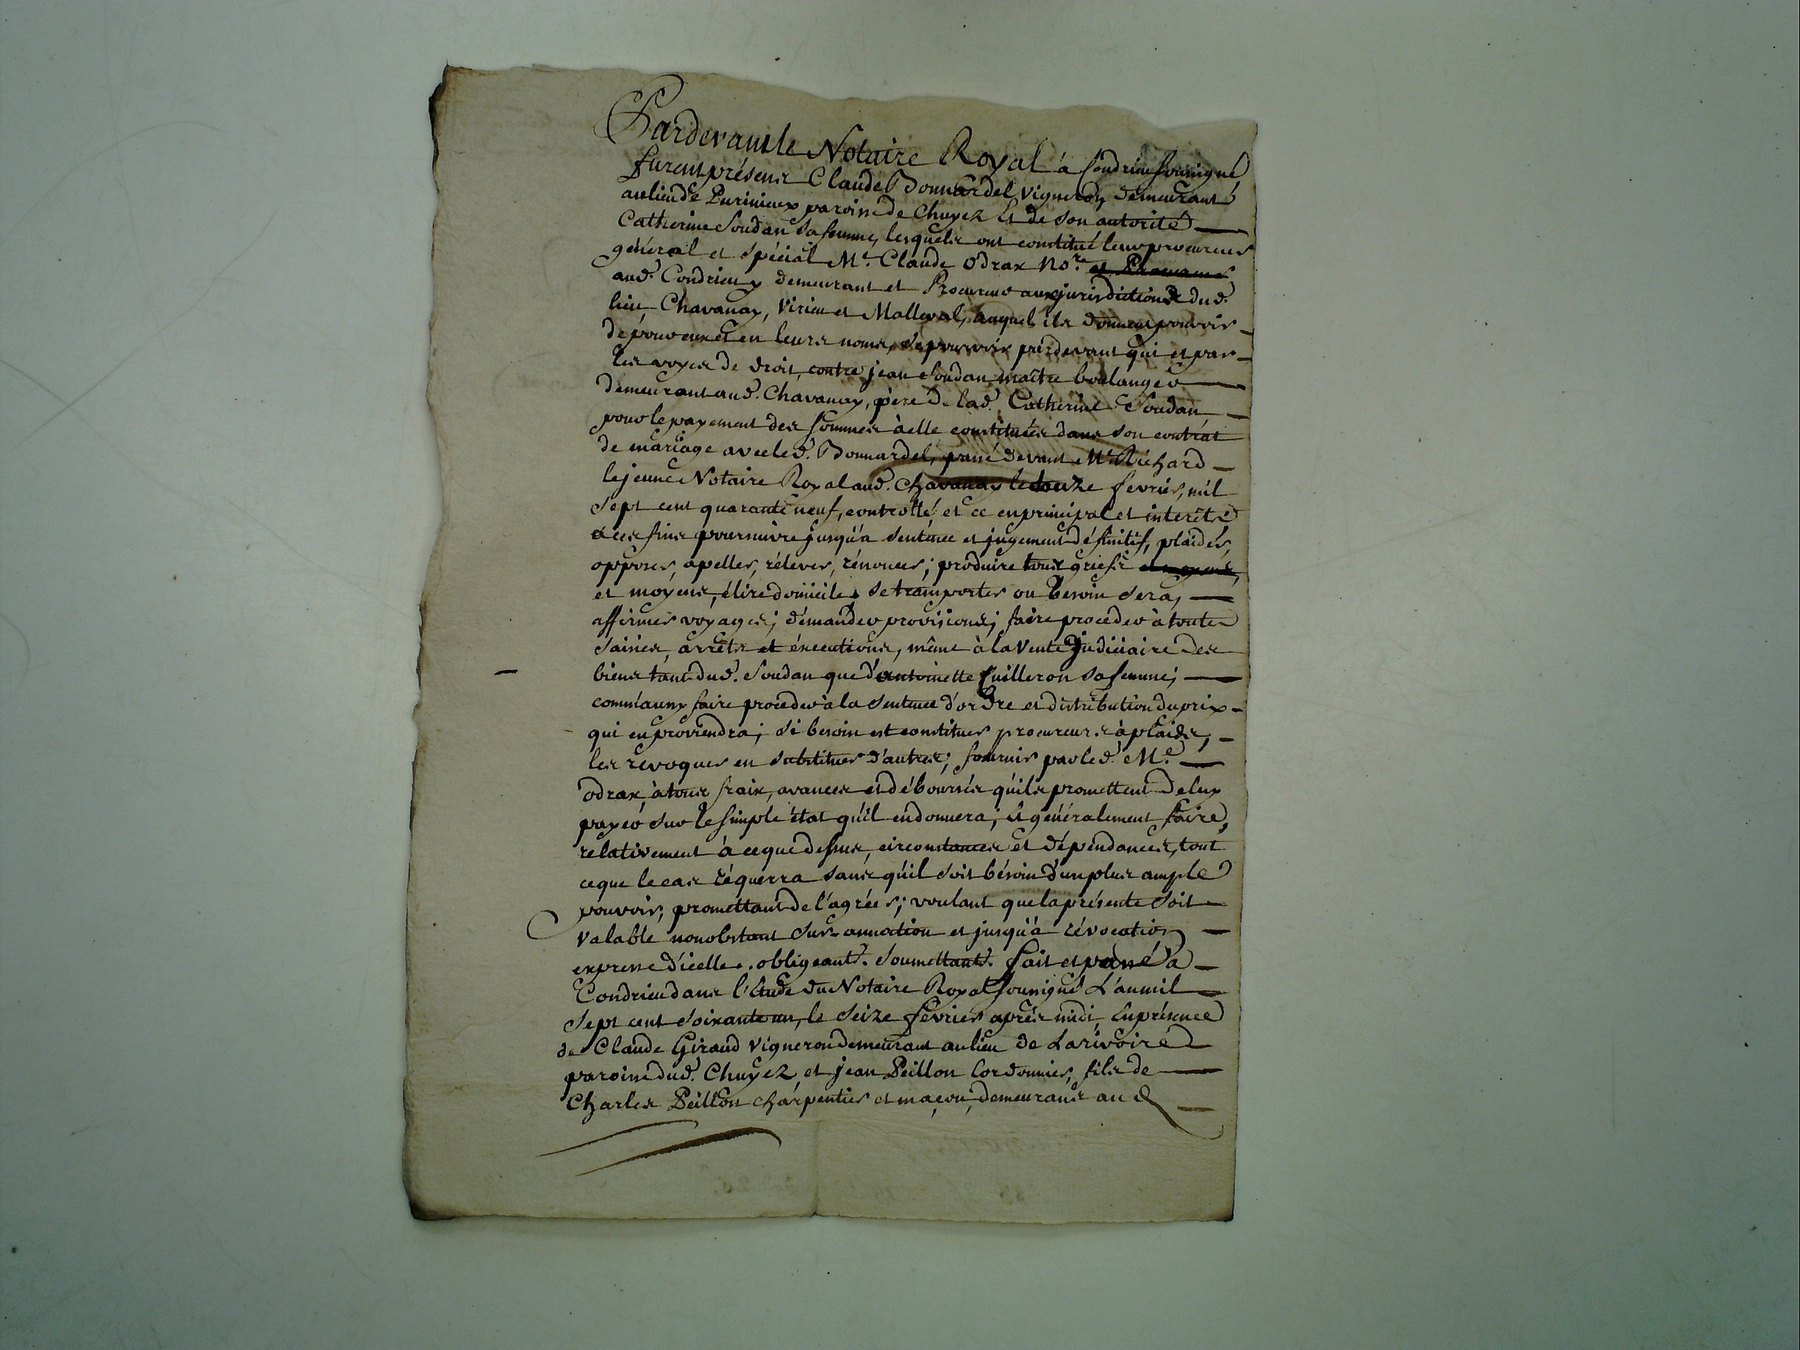 Pardevant le Notaire Royal à Condrieu soussigné
furent présens Claude Bonnardel vigneron demeurant
au lieu de Purinieux paroisse de Chuyez Et de son autorité
Catherine Soudan sa femme, lesquels ont constitué leur procureur
général et spécial Me. Claude Odrax No.re et Procureur
aud. Condrieu y demeurant et Procureur aux jurisdictions dud.
lieu Chavanay, Virieu et Malleval, auquel ils donnent pouvoir
de pour eux et en leurs noms, se pourvoir pardevant qui et par
les voyes de droit, contre jean Soudan maître boulanger
demeurant aud. Chavanay, père de lad. Catherine Soudan
pour le payement des sommes à elle constituées dans son contrat
de mariage avec led. Bonnardel, passé devant Me Richard
le jeune Notaire Royal aud. Chavanay le douze fevrier, mil
sept cent quarante neuf, controllé et ce en principal et interêts
à ces fins poursuivre jusqu'à sentence et jugement définitif, plaider,
opposer, apeller, rélever, rénoncer; produire tous griefs
et moyens, élire domicile, se transporter ou besoin sera,
affirmer voyages; démander provisions; faire proceder à toutes
saisies, arrêts et éxecutions, même à la vente judiciaire des
biens tant dud. Soudan que d'antoinette Cuilleron sa femme;
comm'aussy faire proceder à la sentence d'ordre et distribution du prix
qui en proviendra; si besoin est constituer procureurs à plaids,
les révoquer en substituer d'autres; fournir par led. Me.
odrax, à tous fraix, avances et déboursés qu'ils promettent de luy
payer sur le simple état qu'il en donnera; Et généralement faire,
relativement à ce que dessus, circonstances et dépendances, tout
ce que le cas réquerra sans qu'il soit bésoin d'un plus ample
pouvoir, promettant de l'agréer; voulant que la présente soit
valable nonobstant sur-annation et jusqu'à révocation
expresse d'icelle. obligeant. Soumettant. fait et passé à
Condrieu dans l'étude du Notaire Royal soussigné L'an mil
sept cent soixante un, le seize février après midi, En présence
de Claude Giraud vigneron demeurant au lieu de Larivoire
paroisse dud. Chuyez, et jean Peillon Cordonnier, fils de
Charles Peillon charpentier et maçon, demeurans aud.